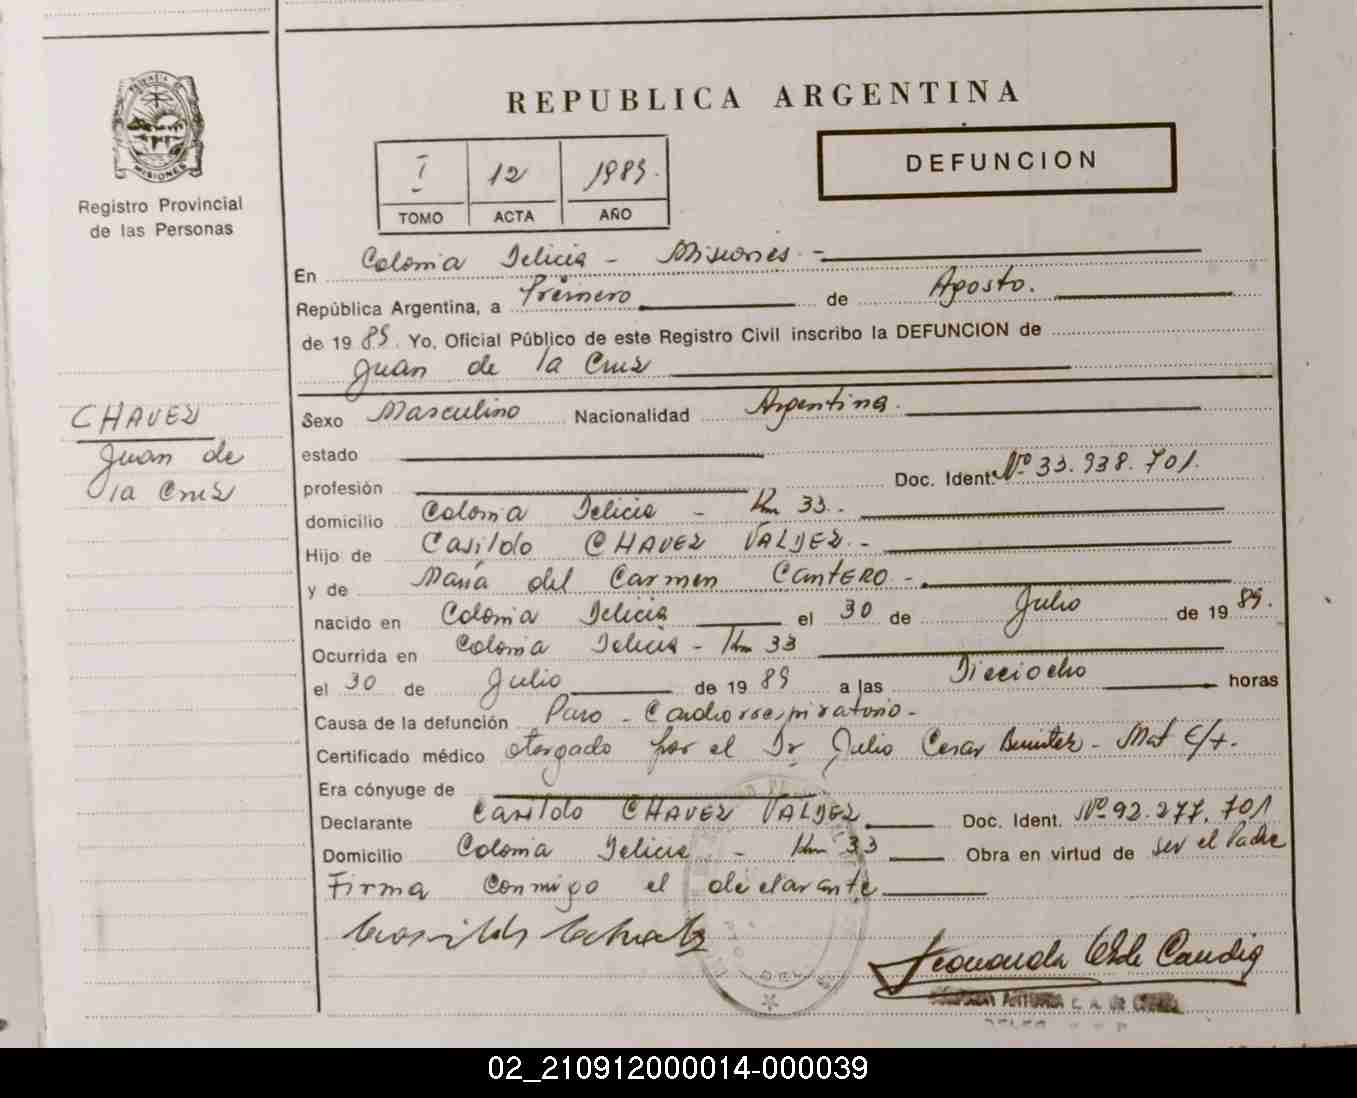 PROVINCIA
MISIONES
Registro Provincial
de las Personas
CHAVEZ
Juan de
la Cruz
REPUBLICA ARGENTINA
I 12 1989.
TOMO ACTA AÑO
DEFUNCION
En Colonia Delicia - Misiones -
República Argentina, a Primero de Agosto.
de 19 89. Yo, Oficial Público de este Registro Civil inscribo la DEFUNCION de
Juan de la Cruz
Sexo Masculino Nacionalidad Argentina.
estado
profesión Doc. Ident. Nº 33.938.701.
domicilio Colonia Delicia - Km 33.-
Hijo de Casildo CHAVEZ VALDEZ.-
y de María del Carmen CANTERO-
nacido en Colonia Delicia el 30 de Julio de 19 89.
Ocurrida en Colonia Delicia - Km 33
el 30 de Julio de 19 89 a las Dieciocho horas
Causa de la defunción Paro - Cardiorrespiratorio-
Certificado médico otorgado por el Dr Julio Cesar Benitez - Mat E/t.
Era cónyuge de
Declarante Casildo CHAVEZ VALDEZ Doc. Ident. Nº 92.277.701
Domicilio Colonia Delicia - Km 33 Obra en virtud de ser el Padre
Firma conmigo el declarante
02_210912000014-000039